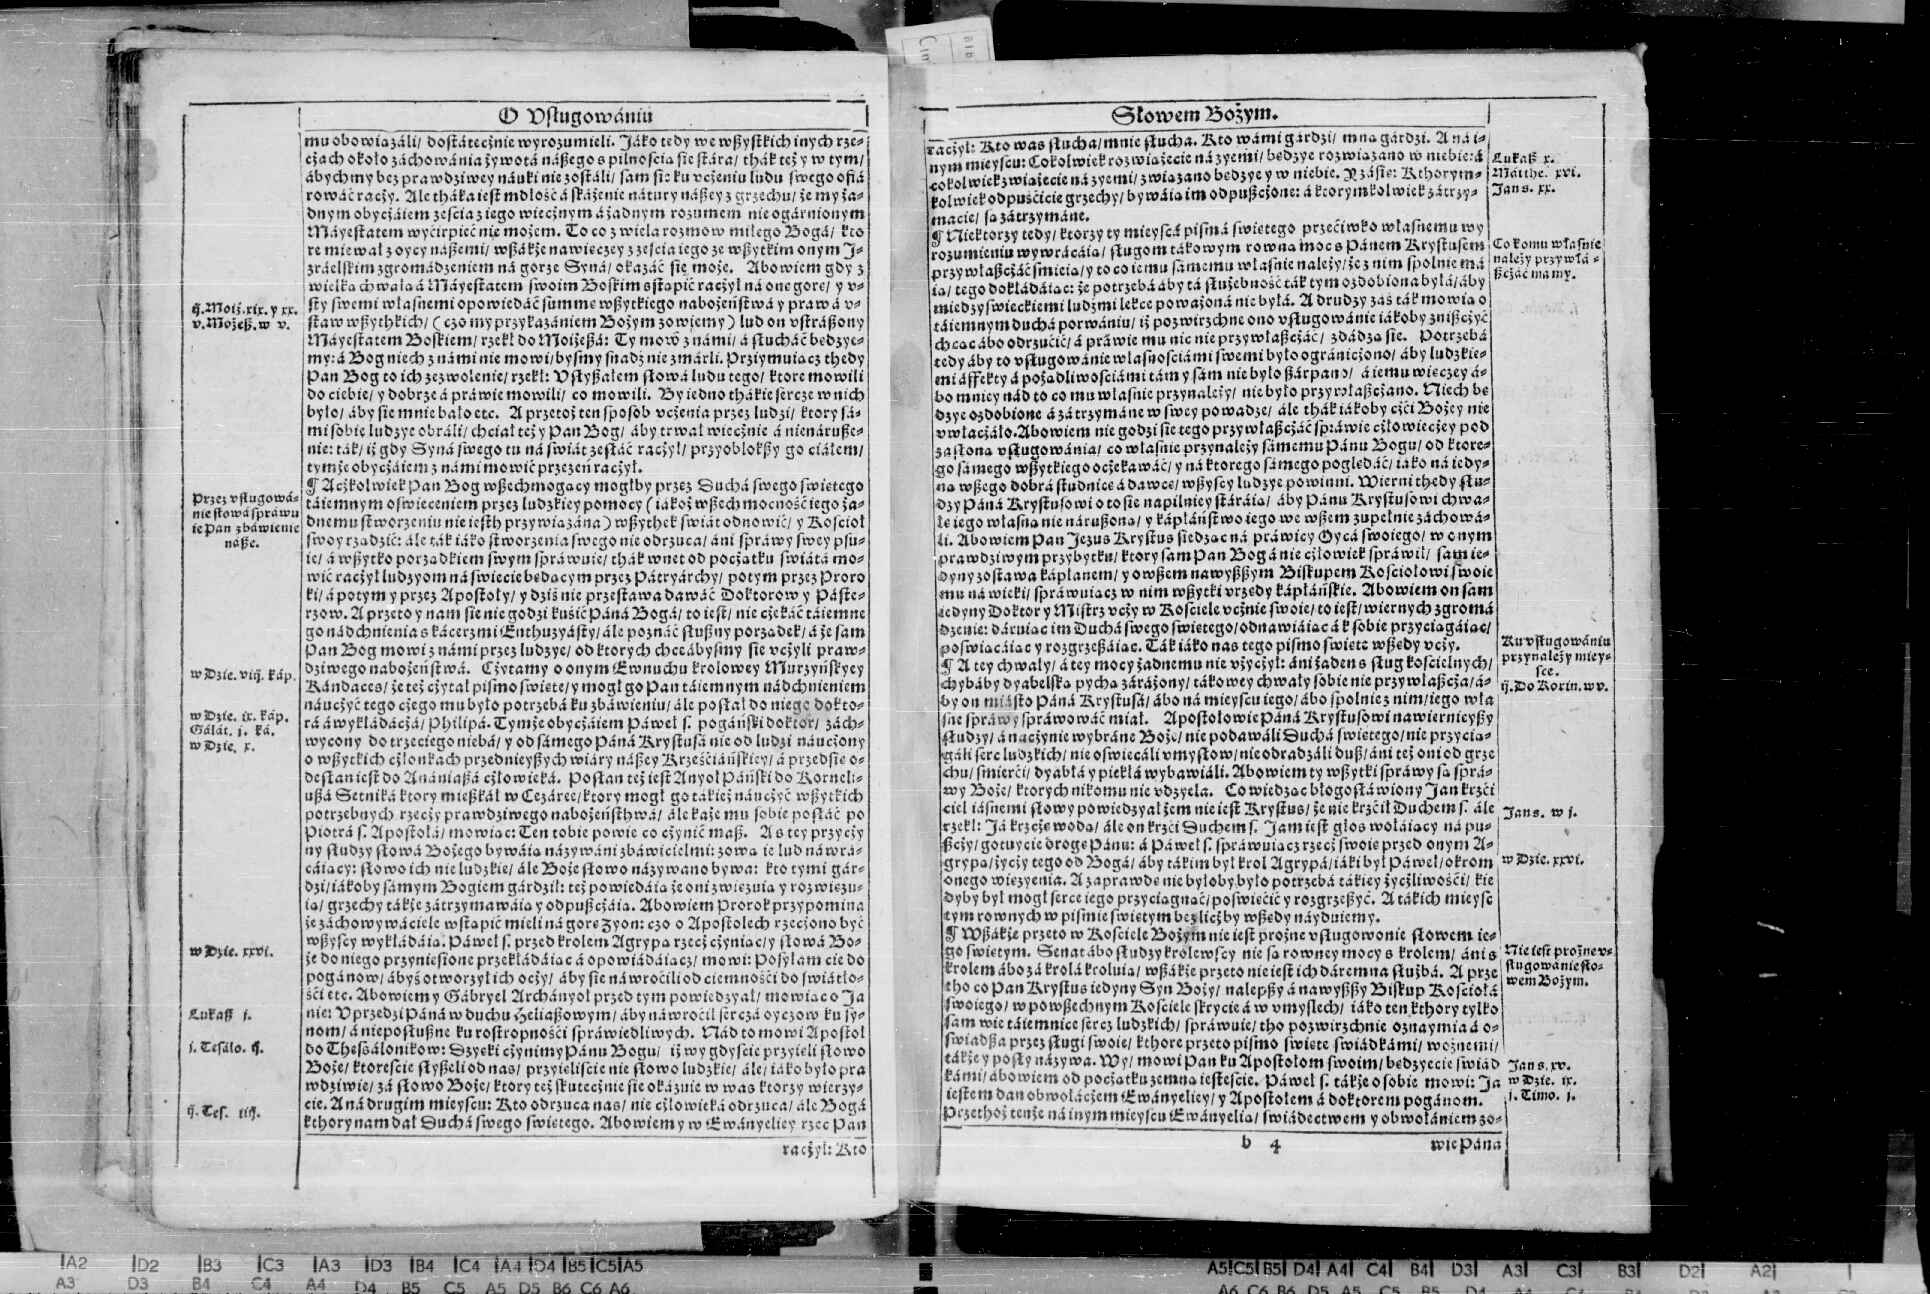 O Vsługowániu
mu obowiązáli/ dostátecżnie wyrozumieli. Jáko tedy we wßystkich inych rze-
cżach około záchowánia żywotá náßego s pilnoscią sie stára/ thák też y w tym/
ábychmy bez prawdziwey náuki nie zostáli/ sam sie ku vcżeniu ludu swego ofiá
rowáć racży. Ale tháka iest mdłość á skáżenie nátury náßey z grzechu/ że my żá-
dnym obycżáiem ześcia z iego wiecżnym á żadnym rozumem nie ogárnionym
Máyestatem wyćirpieć nie możem. To co z wielá rozmow miłego Bogá/ kto
re miewał z oycy náßemi/ wßákże nawiecey z ześcia iego ze wßytkim onym J-
zráelskim zgromádzeniem ná gorze Syná/ okazáć się może. Abowiem gdy z
wielką chwałą á Máyestatem swoim Boskim ostąpić racżył ná onę gorę/ y v-
sty swemi własnemi opowiedáć summę wßytkiego nabożeństwá y práwá v-
staw wßythkich/ (cżo my przykazániem Bożym zowiemy) lud on vstráßony
Máyestatem Boskiem/ rzekł do Moiżeßá: Ty mow z námi/ á słucháć będzye-
my: á Bog niech z námi nie mowi/ byśmy snadź nie zmárli. Przyimuiąc thedy
Pan Bog to ich zezwolenie/ rzekł: Vstyßałem słowá ludu tego/ ktore mowili
do ciebie/ y dobrze á práwie mowili/ co mowili. By iedno thákie serce w nich
było/ áby sie mnie bało etc. A przetoż ten sposob vcżenia przez ludzi/ ktory sá-
mi sobie ludzye obráli/ chciał też y Pan Bog/ áby trwał wiecżnie á nienáruße-
nie: ták/ iż gdy Syná swego tu ná świát zesłáć racżył/ przyoblokßy go ciáłem/
tymże obycżáiem z námi mowić przezeń racżył.
¶ Acżkolwiek Pan Bog wßechmogący mogłby przez Duchá swego świętego
táiemnym oświeceniem przez ludzkiey pomocy (iákoż wßech mocność iego żá-
dnemu stworzeniu nie iesth przywiązána) wßythek świát odnowić/ y Kościoł
swoy rządzić: ále ták iáko stworzenia swego nie odrzuca/ áni spráwy swey psu-
ie/ á wßytko porządkiem swym spráwuie/ thák wnet od pocżątku świátá mo-
wić racżył ludzyom ná świecie będącym przez Pátryárchy/ potym przez Proro
ki/ á potym y przez Apostoły/ y dziś nie przestawa dawáć Doktorow y Páste-
rzow. A przeto y nam sie nie godzi kusić Páná Bogá/ to iest/ nie cżekáć táiemne
go nádchnienia s kácerzmi Enthuzyásty/ ále poznáć słußny porządek/ á że sam
Pan Bog mowi z námi przez ludzye/ od ktorych chce ábyśmy sie vcżyli praw-
dziwego nabożeństwá. Cżytamy o onym Ewnuchu krolowey Murzyńskyey
Kándáces/ że też cżytał pismo święte/ y mogł go Pan táiemnym nádchnieniem
náucżyć tego cżego mu było potrzebá ku zbáwieniu/ ále posłał do niego dokto-
rá á wykłádácżá/ Philipá. Tymże obycżáiem Páweł s. pogáński doktor/ zách-
wycony do trzeciego niebá/ y od sámego Páná Krystusá nie od ludzi náucżony
o wßytkich cżłonkach przednieyßych wiáry náßey Krześćiáńskiey/ á przedsie o-
desłan iest do Anániaßá cżłowieká. Posłan też iest Anyoł Páński do Korneli-
ußá Setniká ktory mießkał w Cezárec/ ktory mogł go tákież náucżyć wßytkich
potrzebnych rzecży prawdziwego nabożeństhwá/ ále każe mu sobie posłáć po
Piotrá s. Apostołá/ mowiąc: Ten tobie powie co cżynić maß. A s tey przycży
ny słudzy słowá Bożego bywáią názywáni zbáwicielmi: zową ie lud náwrá-
cáiący: słowo ich nie ludzkie/ ále Boże słowo názywano bywa: kto tymi gár-
dzi/ iákoby sámym Bogiem gárdził: też powiedáią że oni zwięzuią y rozwięzu-
ią/ grzechy tákże zátrzymawáią y odpußcżáią. Abowiem Prorok przypomina
że záchowywáciele wstąpić mieli ná gorę Zyon: czo o Apostolech rzecżono być
wßyscy wykłádáią. Páweł s. przed krolem Agrypą rzecż cżyniąc/ y słowá Bo-
że do niego przyniesione przekłádáiąc á opowiádáiącz/ mowi: Posyłam cie do
pogánow/ ábyś otworzył ich ocży/ áby sie náwroćili od ciemności do świátło-
ści etc. Abowiem y Gábryel Archányoł przed tym powiedzyał/ mowiąc o Ja
nie: Vprzedzi Páná w duchu Heliaßowym/ áby náwroćił sercá oycżow ku sy-
nom/ á nieposłußne ku rostropności spráwiedliwych. Nád to mowi Apostoł
do Thessálonikow: Dzyęki cżynimy Pánu Bogu/ iż wy gdyście przyięli słowo
Boże/ ktoreście słyßeli od nas/ przyięliście nie słowo ludzkie/ ále/ iáko było pra
wdziwie/ zá słowo Boże/ ktory też skutecżnie sie okázuie w was ktorzy wierzy-
cie. A ná drugim mieyscu: Kto odrzuca nas/ nie cżłowieká odrzuca/ ále Bogá
kthory nam dał Duchá swego świętego. Abowiem y w Ewányeliey rzec Pan
racżył: Kto
ij. Moiż. xix. y xx.
v. Możeß. w v.
Przez vsługowá-
nie słowá spráwu
ie Pan zbáwienie
náße.
w Dzie. viij. káp.
w Dzie. ix. káp.
Gálát. j. ká.
w Dzie. x.
w Dzie. xxvi.
Lukaß j.
j. Tesálo. ij.
ij. Tes. iiij.
Słowem Bożym.
racżył: Kto was słucha/ mnie słucha. Kto wámi gárdzi/ mną gárdzi. A ná i-
nym mieyscu: Cokolwiek rozwiążecie ná zyemi/ będzye rozwiązano w niebie: á
cokolwiek zwiążecie ná zyemi/ związano będzye y w niebie. Y zásię: Kthorym-
kolwiek odpuśćicie grzechy/ bywáią im odpußcżone: á ktorymkolwiek zátrzy-
macie/ są zátrzymáne.
¶ Niektorzy tedy/ ktorzy ty mieyscá pismá świętego przećiwko własnemu wy
rozumieniu wywracáią/ sługom tákowym rowną moc s Pánem Krystusem
przywłaßcżáć śmieią/ y to co iemu sámemu własnie należy/ że z nim społnie má
ią/ tego dokłádáiąc: że potrzebá áby tá służebność ták tym ozdobiona byłá/ áby
miedzy świeckiemi ludźmi lekce poważoná nie byłá. A drudzy zás ták mowią o
táiemnym duchá porwániu/ iż pozwirzchne ono vsługowánie iákoby zniszcżyć
chcąc ábo odrzućić/ á práwie mu nic nie przywłaßcżáć/ zdádzą sie. Potrzebá
tedy áby to vsługowánie własnościámi swemi było ogránicżono/ áby ludzkie-
mi áffekty á pożądliwościámi tám y sám nie było ßárpano/ á iemu więcey á-
bo mniey nád to co mu własnie przynależy/ nie było przywłaßcżano. Niech bę
dzye ozdobione á zátrzymáne w swey powadze/ ále thák iákoby cżći Bożey nie
vwłacżáło. Abowiem nie godzi sie tego przywłaßcżáć spráwie cżłowiecżey pod
zasłoną vsługowánia/ co własnie przynależy sámemu Pánu Bogu/ od ktore-
go sámego wßytkiego ocżekawáć/ y ná ktorego sámego poględáć/ iáko ná iedy-
ną wßego dobrá studnicę á dawcę/ wßyscy ludzye powinni. Wierni thedy słu-
dzy Páná Krystusowi o to sie napilniey stáráią/ áby Pánu Krystusowi chwa-
łę iego własna nie nárußona/ y kápłáństwo iego we wßem zupełnie záchowá-
li. Abowiem Pan Jezus Krystus siedząc ná práwicy Oycá swoiego/ w onym
prawdziwym przybytku/ ktory sam Pan Bog á nie cżłowiek spráwił/ sam ie-
dyny zostawa kápłanem/ y owßem nawyßßym Biskupem Kościołowi swoie
mu ná wieki/ spráwuiącz w nim wßytki vrzędy kápłáńskie. Abowiem on sam
iedyny Doktor y Mistrz vcży w Kościele vcżnie swoie/ to iest/ wiernych zgromá
dzenie: dáruiąc im Duchá swego świętego/ odnawiáiąc á k sobie przyciągáiąc/
poświącáiąc y rozgrzeßáiąc. Ták iáko nas tego pismo święte wßędy vcży.
¶ A tey chwały/ á tey mocy żadnemu nie vżycżył: áni żaden s sług kościelnych/
chybáby dyabelską pychą záráżony/ tákowey chwały sobie nie przywłaßcża/ á-
by on miásto Páná Krystusá/ ábo ná mieyscu iego/ ábo społnie z nim/ iego wła
sne spráwy spráwowáć miał. Apostołowie Páná Krystusowi nawiernieyßy
słudzy/ á nacżynie wybráne Boże/ nie podawáli Duchá świętego/ nie przyciá-
gáli serc ludzkich/ nie oświecáli vmysłow/ nie odradzáli duß/ áni też oni od grze
chu/ śmierći/ dyabłá y piekłá wybáwiáli. Abowiem ty wßytki spráwy są sprá-
wy Boże/ ktorych nikomu nie vdzyela. Co wiedząc błogosłáwiony Jan krzći
ciel iásnemi słowy powiedzyał żem nie iest Krystus/ że nie krzćił Duchem s. ále
rzekł: Ja krzcżę wodą/ ále on krzći Duchem s. Jam iest głos wołáiący ná pu-
ßcży/ gotuycie drogę Pánu: á Páweł s. spráwuiącz rzecż swoię przed onym A-
grypą/ życży tego od Bogá/ áby tákim był krol Agrypá/ iáki był Páweł/ okrom
onego więzyenia. A zaprawdę nie byłoby było potrzebá tákiey życżliwości/ kie
dyby był mogł serce iego przyciągnąć/ poświęćić y rozgrzeßyć. A tákich mieysc
tym rownych w pismie świętym bez licżby wßędy náyduiemy.
¶ Wßákże przeto w Kościele Bożym nie iest prożne vsługowonie słowem ie-
go świętym. Senat ábo słudzy krolewscy nie są rowney mocy s krolem/ áni s
krolem ábo zá krolá kroluią/ wßákże przeto nie iest ich dáremna służbá. A prze
tho co Pan Krystus iedyny Syn Boży/ nalepßy á nawyßßy Biskup Kościołá
swoiego/ w powßechnym Kościele skrycie á w vmyslech/ iáko ten kthory tylko
sam wie táiemnice serc ludzkich/ spráwuie/ tho pozwirzchnie oznaymia á o-
świadßa przez sługi swoie/ kthore przeto pismo święte świádkámi/ woźnemi/
tákże y posły názywa. Wy/ mowi Pan ku Apostołom swoim/ będzyecie świád
kámi/ ábowiem od pocżątku zemną iesteście. Páweł s. tákże o sobie mowi: Ja
iestem dan obwołácżem Ewányeliey/ y Apostołem á doktorem pogánom.
Przethoż tenże ná inym mieyscu Ewányelią/ świádectwem y obwołániem zo-
b 4 wie Páná
Lukaß x.
Matthe. xvi.
Jan s. xx.
Co komu własnie
należy przywłá-
ßcżáć mamy.
Ku vsługowániu
przynależy miey-
sce.
ij. Do Korin. w v.
Jan s. w j.
w Dzie. xxvi.
Nie iest prożne v-
sługowánie sło-
wem Bożym.
Jan s. xv.
w Dzie. ix.
j. Timo. j.
A2 D2 B3 C3 A3 D3 B4 C4 A4 D4 B5 C5 A5
A3 D3 B4 C4 A4 D4 B5 C5 A5 D5 B6 C6 A6
A5 C5 B5 D4 A4 C4 B4 D3 A3 C3 B3 D2 A2
A6 C6 B6 D5 A5 C5 B5 D4